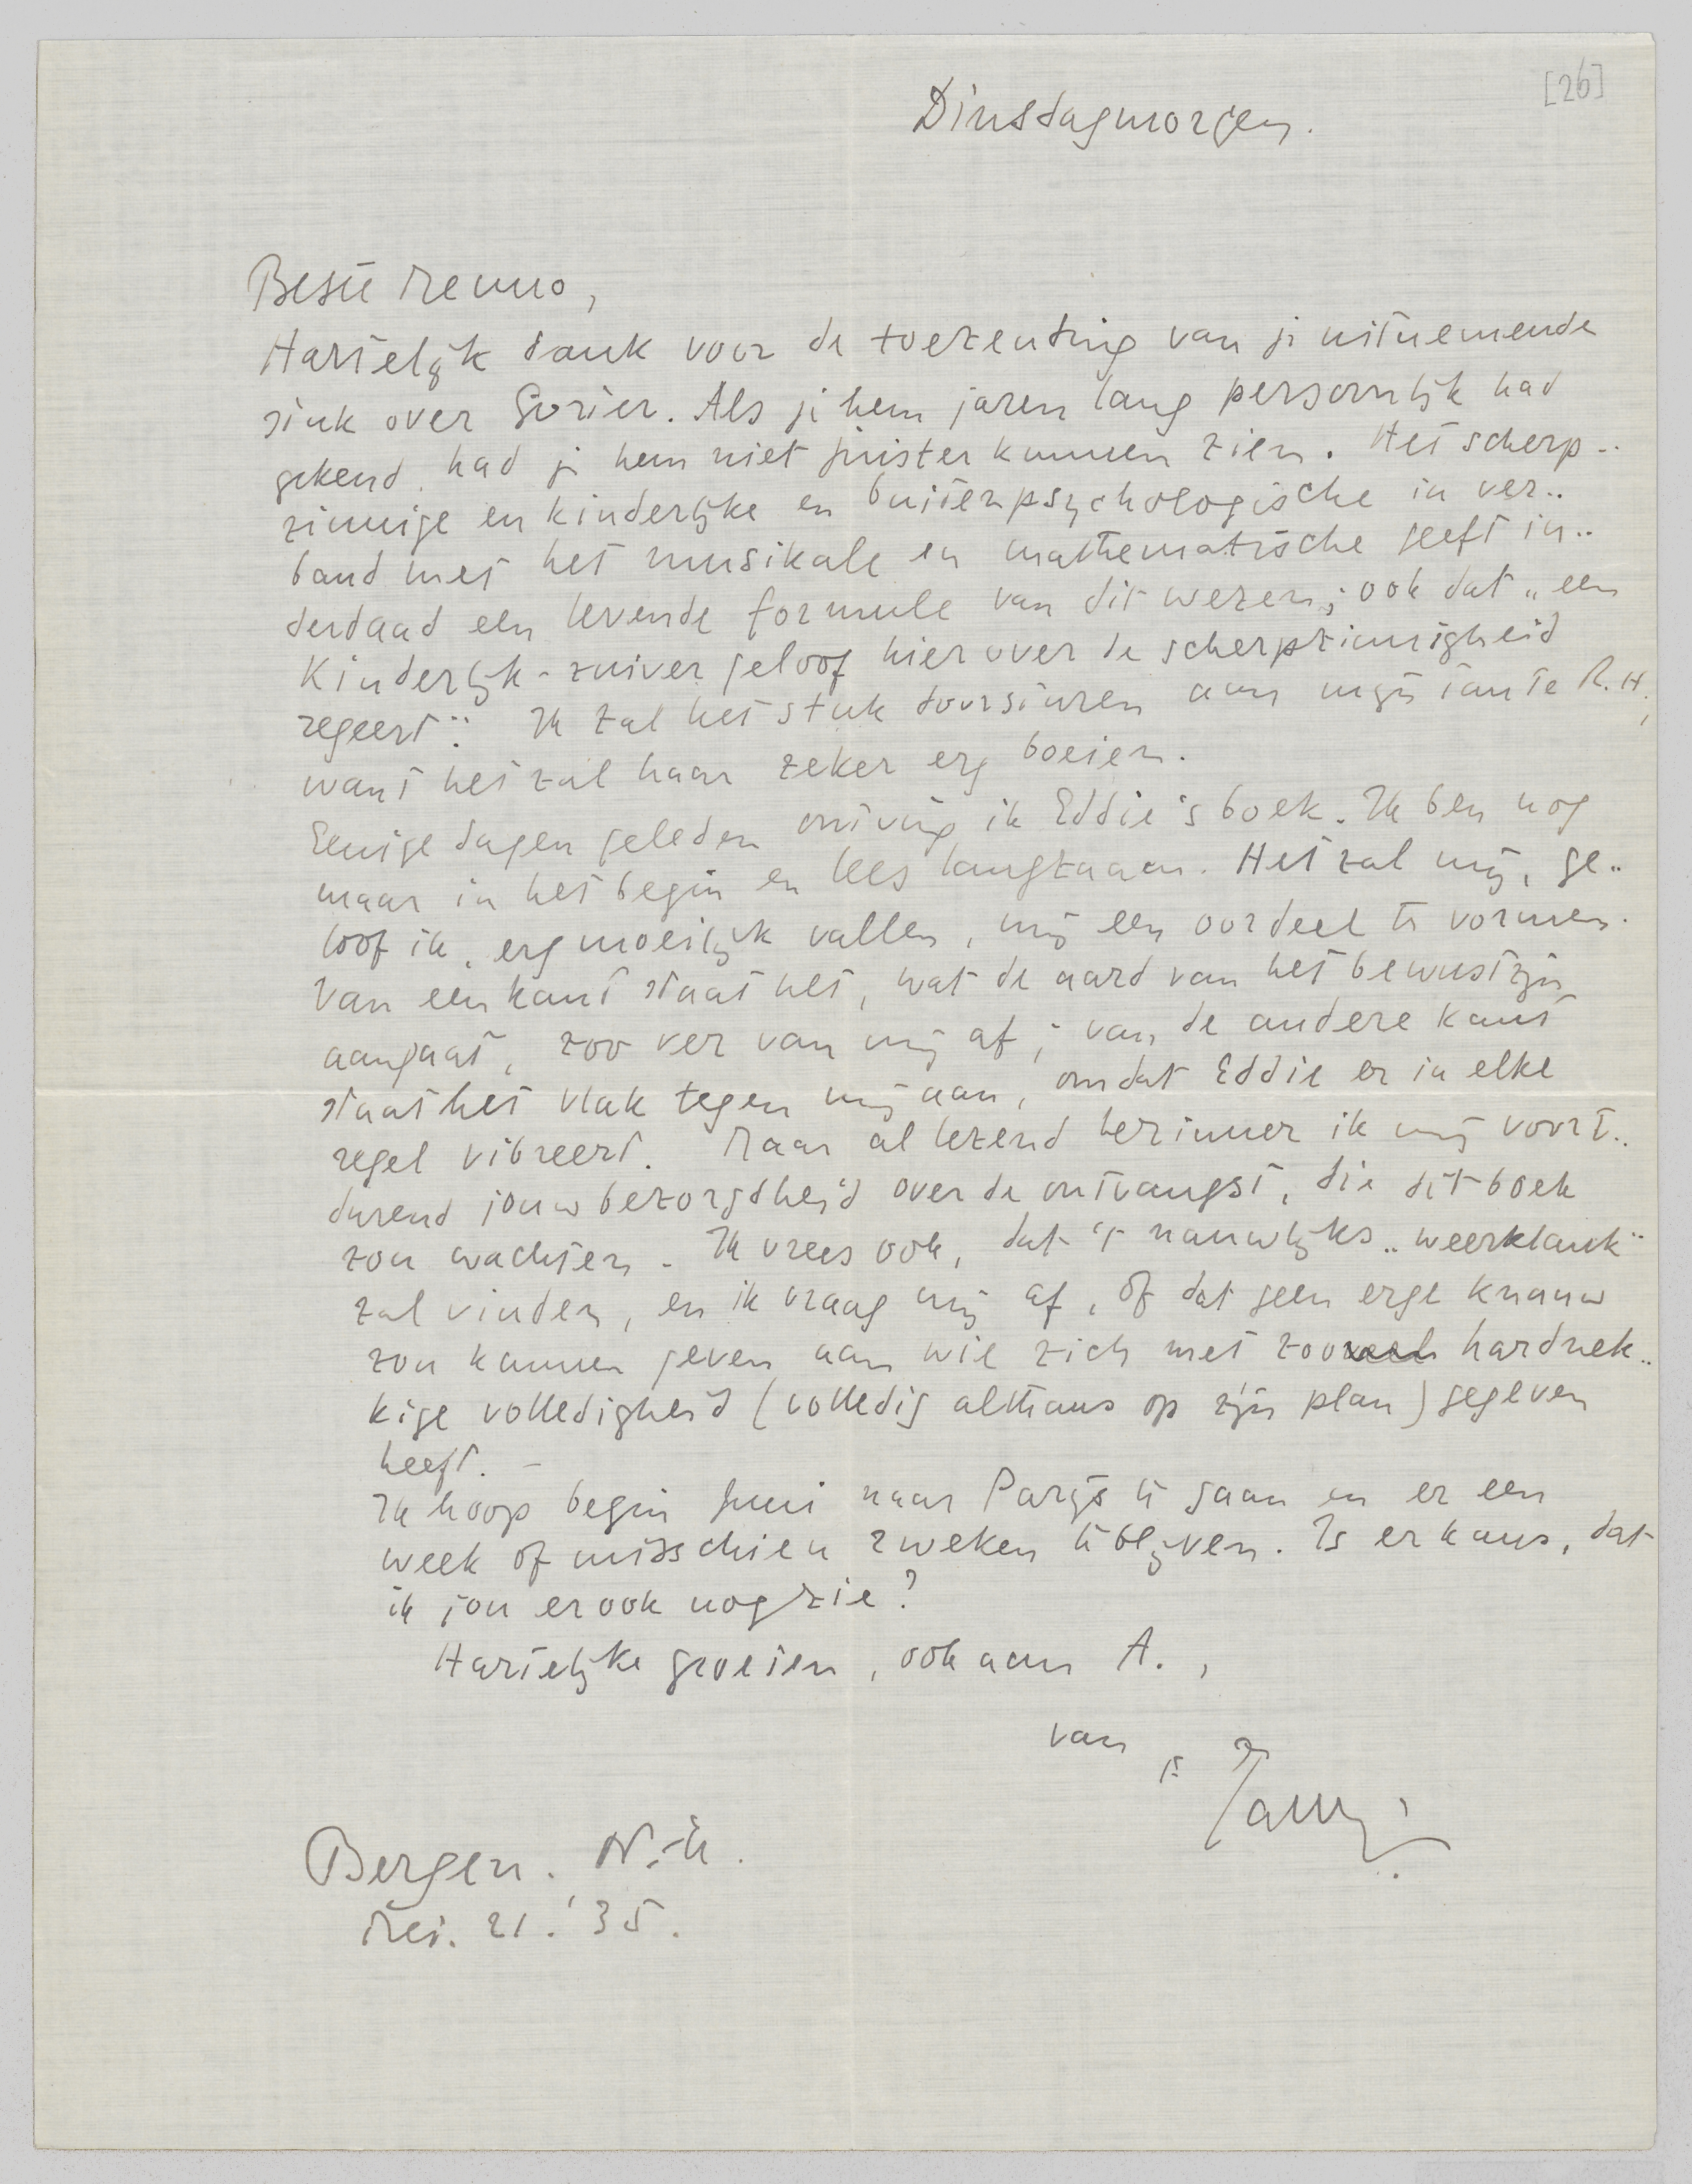 [26]
Dinsdagmorgen.
Beste Menno,
Hartelijk dank voor de toezending van je uitnemende
stuk over Gorter. Als je hem jaren lang persoonlijk had
gekend, had je hem niet juister kunnen zien. Het scherp-
zinnige en kinderlijke en buitenpsychologische in ver-
band met het musikale en mathematische geeft in-
derdaad een levende formule van dit wezen; ook dat „een
kinderlijk-zuiver geloof hier over de scherpzinnigheid
regeert". Ik zal het stuk doorsturen aan mijn tante R.H.,
want het zal haar zeker erg boeien.
Eenige dagen geleden ontving ik Eddie's boek. Ik ben nog
maar in het begin en lees langzaam. Het zal mij, ge-
loof ik, erg moeilijk vallen, mij een oordeel te vormen.
Van een kant staat het, wat de aard van het bewustzijn
aangaat, zoo ver van mij af; van de andere kant
staat het vlak tegen mij aan, omdat Eddie er in elke
regel vibreert. Maar al lezend herinner ik mij voort-
durend jouw bezorgdheid over de ontvangst, die dit boek
zou wachten. Ik vrees ook, dat 't nauwlijks „weerklank"
zal vinden, en ik vraag mij af, of dat geen erge knauw
zou kunnen geven aan wie zich met zooveel hardnek-
kige volledigheid (volledig althans op zijn plan) gegeven
heeft. –
Ik hoop begin Juni naar Parijs te gaan en er een
week of misschien 2 weken te blijven. Is er kans, dat
ik jou er ook nog zie?
Hartelijke groeten, ook aan A.,
van
je Jany
Bergen. N.-H.
Mei. 21. '35.